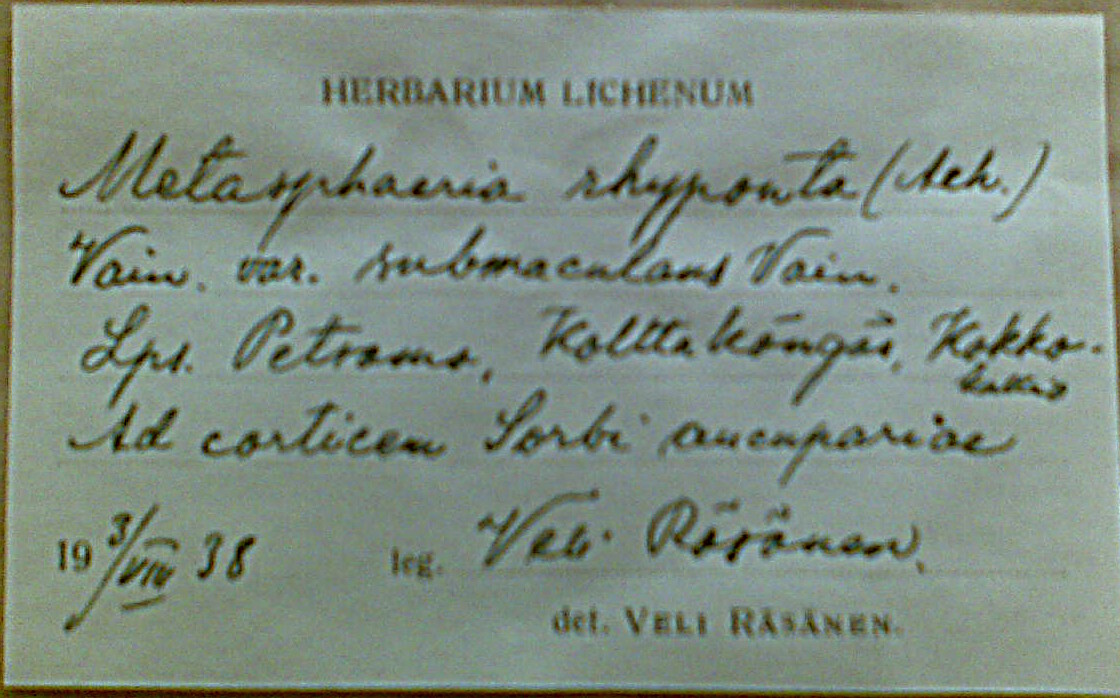 HERBARIUM LICHENUM
Metasphaeria rhyponta (Ach.)
Vain. var. submaculans Vain.
Lps. Petsamo, Kolttaköngäs, Kokko-
kallio
Ad corticem Sorbi aucupariae
19 3/VIII 38 leg. Veli Räsänen.
det. VELI RÄSÄNEN.